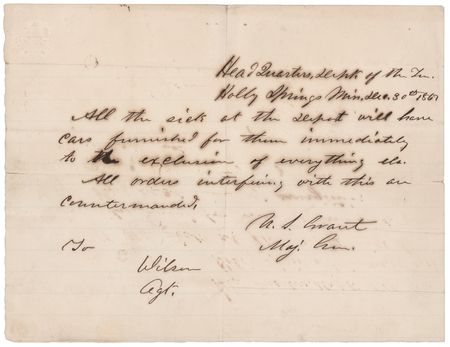 Head Quarters, Dept. of the Ten.
Holly Springs Miss, Dec. 30th 186
All the sick at the depot will have
cars furnished for them immediately
to the exclusion of everything els.
All orders interfering with this are
countermanded.
U. S. Grant
Maj. Gen.
To
Wilson
Agt.